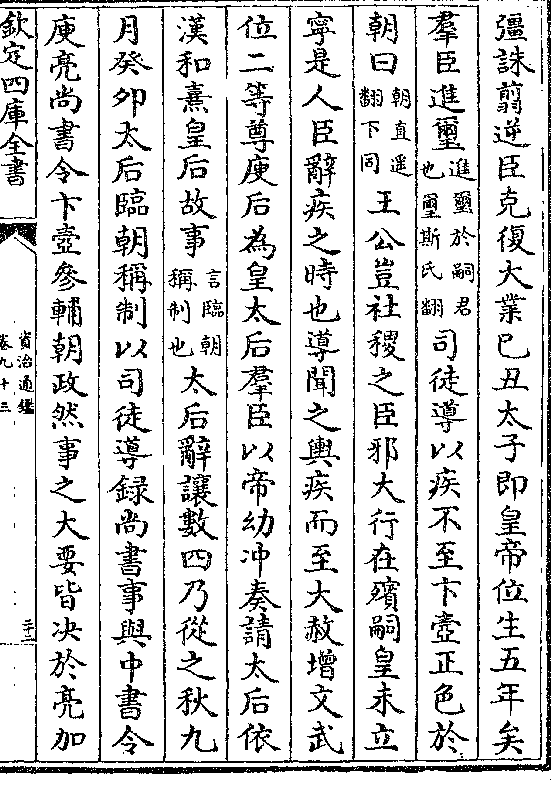 彊誅翦逆臣克復大業己丑太子即皇帝位生五年矣
羣臣進璽進璽於嗣君也璽斯氏翻司徒導以疾不至卞壼正色於
朝曰朝直遥翻下同王公豈社稷之臣邪大行在殯嗣皇未立
寧是人臣辭疾之時也導聞之輿疾而至大赦增文武
位二等尊庾后為皇太后羣臣以帝幼冲奏請太后依
漢和熹皇后故事言臨朝稱制也太后辭讓數四乃從之秋九
月癸夘太后臨朝稱制以司徒導録尚書事與中書令
庾亮尚書令卞壼參輔朝政然事之大要皆决於亮加
欽定四庫全書
資治通鑑
卷九十三
二十二